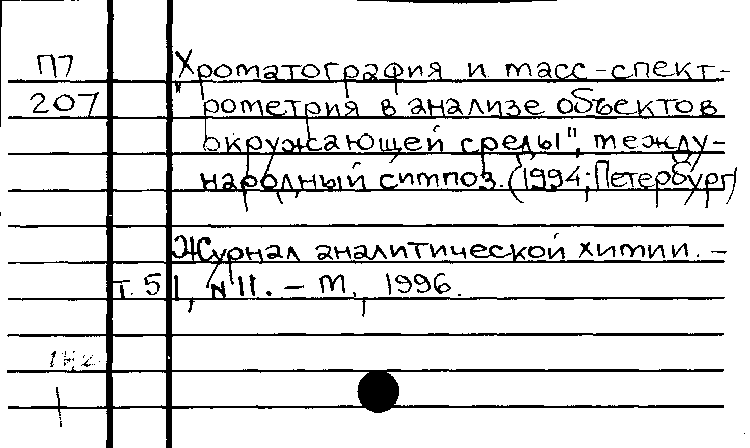 П7 "Хроматография и масс-спект-
207 рометрия в анализе объектов
окружающей среды", между-
народный симпоз. (1994; Петербург)
Журнал аналитической химии. –
т. 51, N 11. – М., 1996.